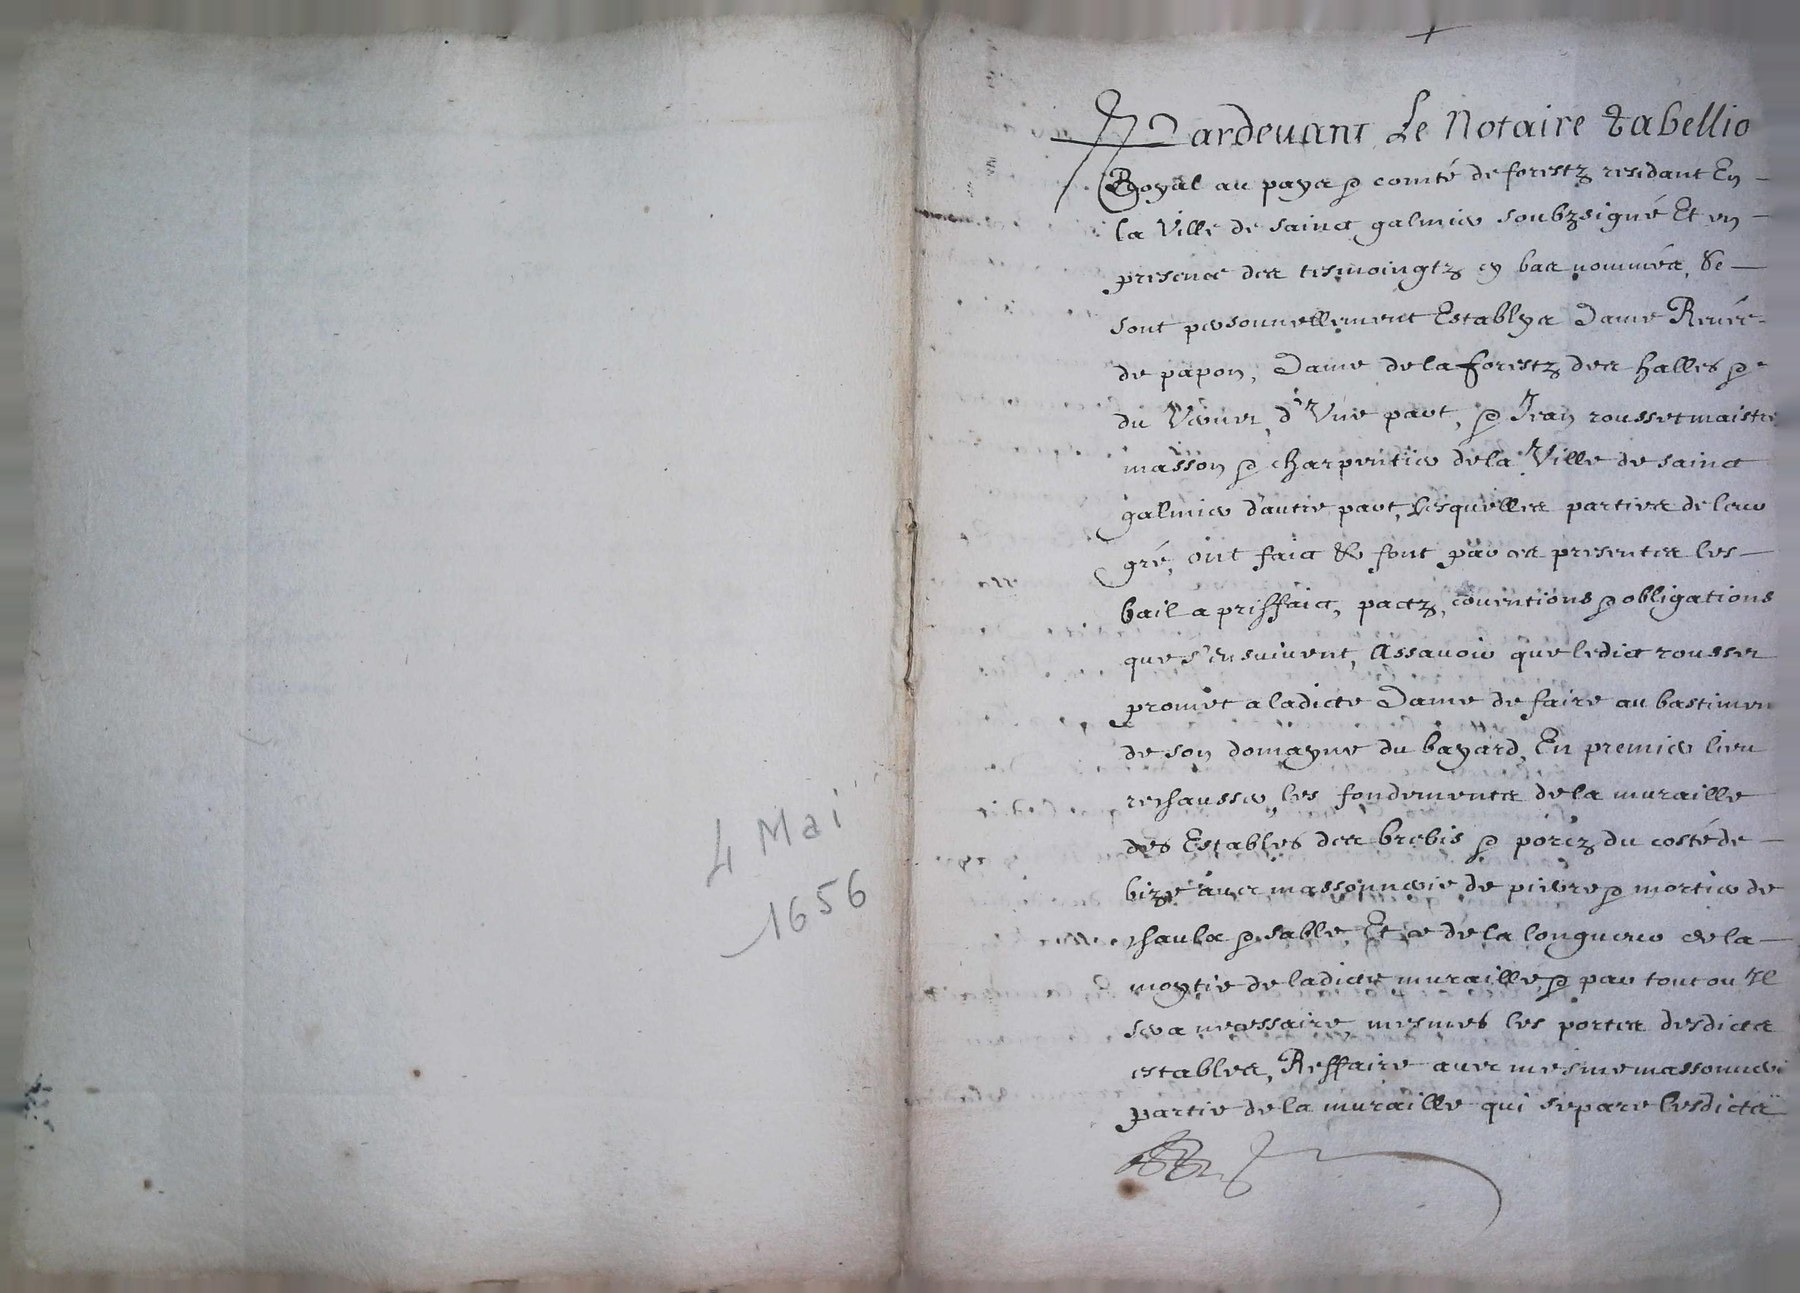 4 Mai
1656
Pardevant Le Notaire Tabellio
Royal au pays & comté de forestz residant En
la Ville de sainct galmier soubzsigné Et en
presence des tesmoingtz en bas nommés, Se
sont personnellement Establys Dame Renée
de papon, Dame de la forestz des halles &
du d'Vne part, & Jean rousset maistre
masson & charpentier de la Ville de sainct
galmier d'autre part, lesquelles parties de leur
gré, ont faict & font par ces presentes les
bail a priffaict, pactz, conventions & obligations
que s'ensuivent, Assavoir que ledict rousset
promet a ladicte Dame de faire au bastimen
de son domayne du bayard, En premier lieu
rechausser les fondements de la muraille
des Estables des brebis & porcz du costé de
bize avec massonnerie de pierre & mortier de
chaulx & sable Et ce de la longueur de la
moytie de ladicte muraille & par tout ou Il
sera necessaire, mesmes les portes desdictes
estables, Reffaire avec mesme massonneri
partie de la muraille qui separe lesdictes